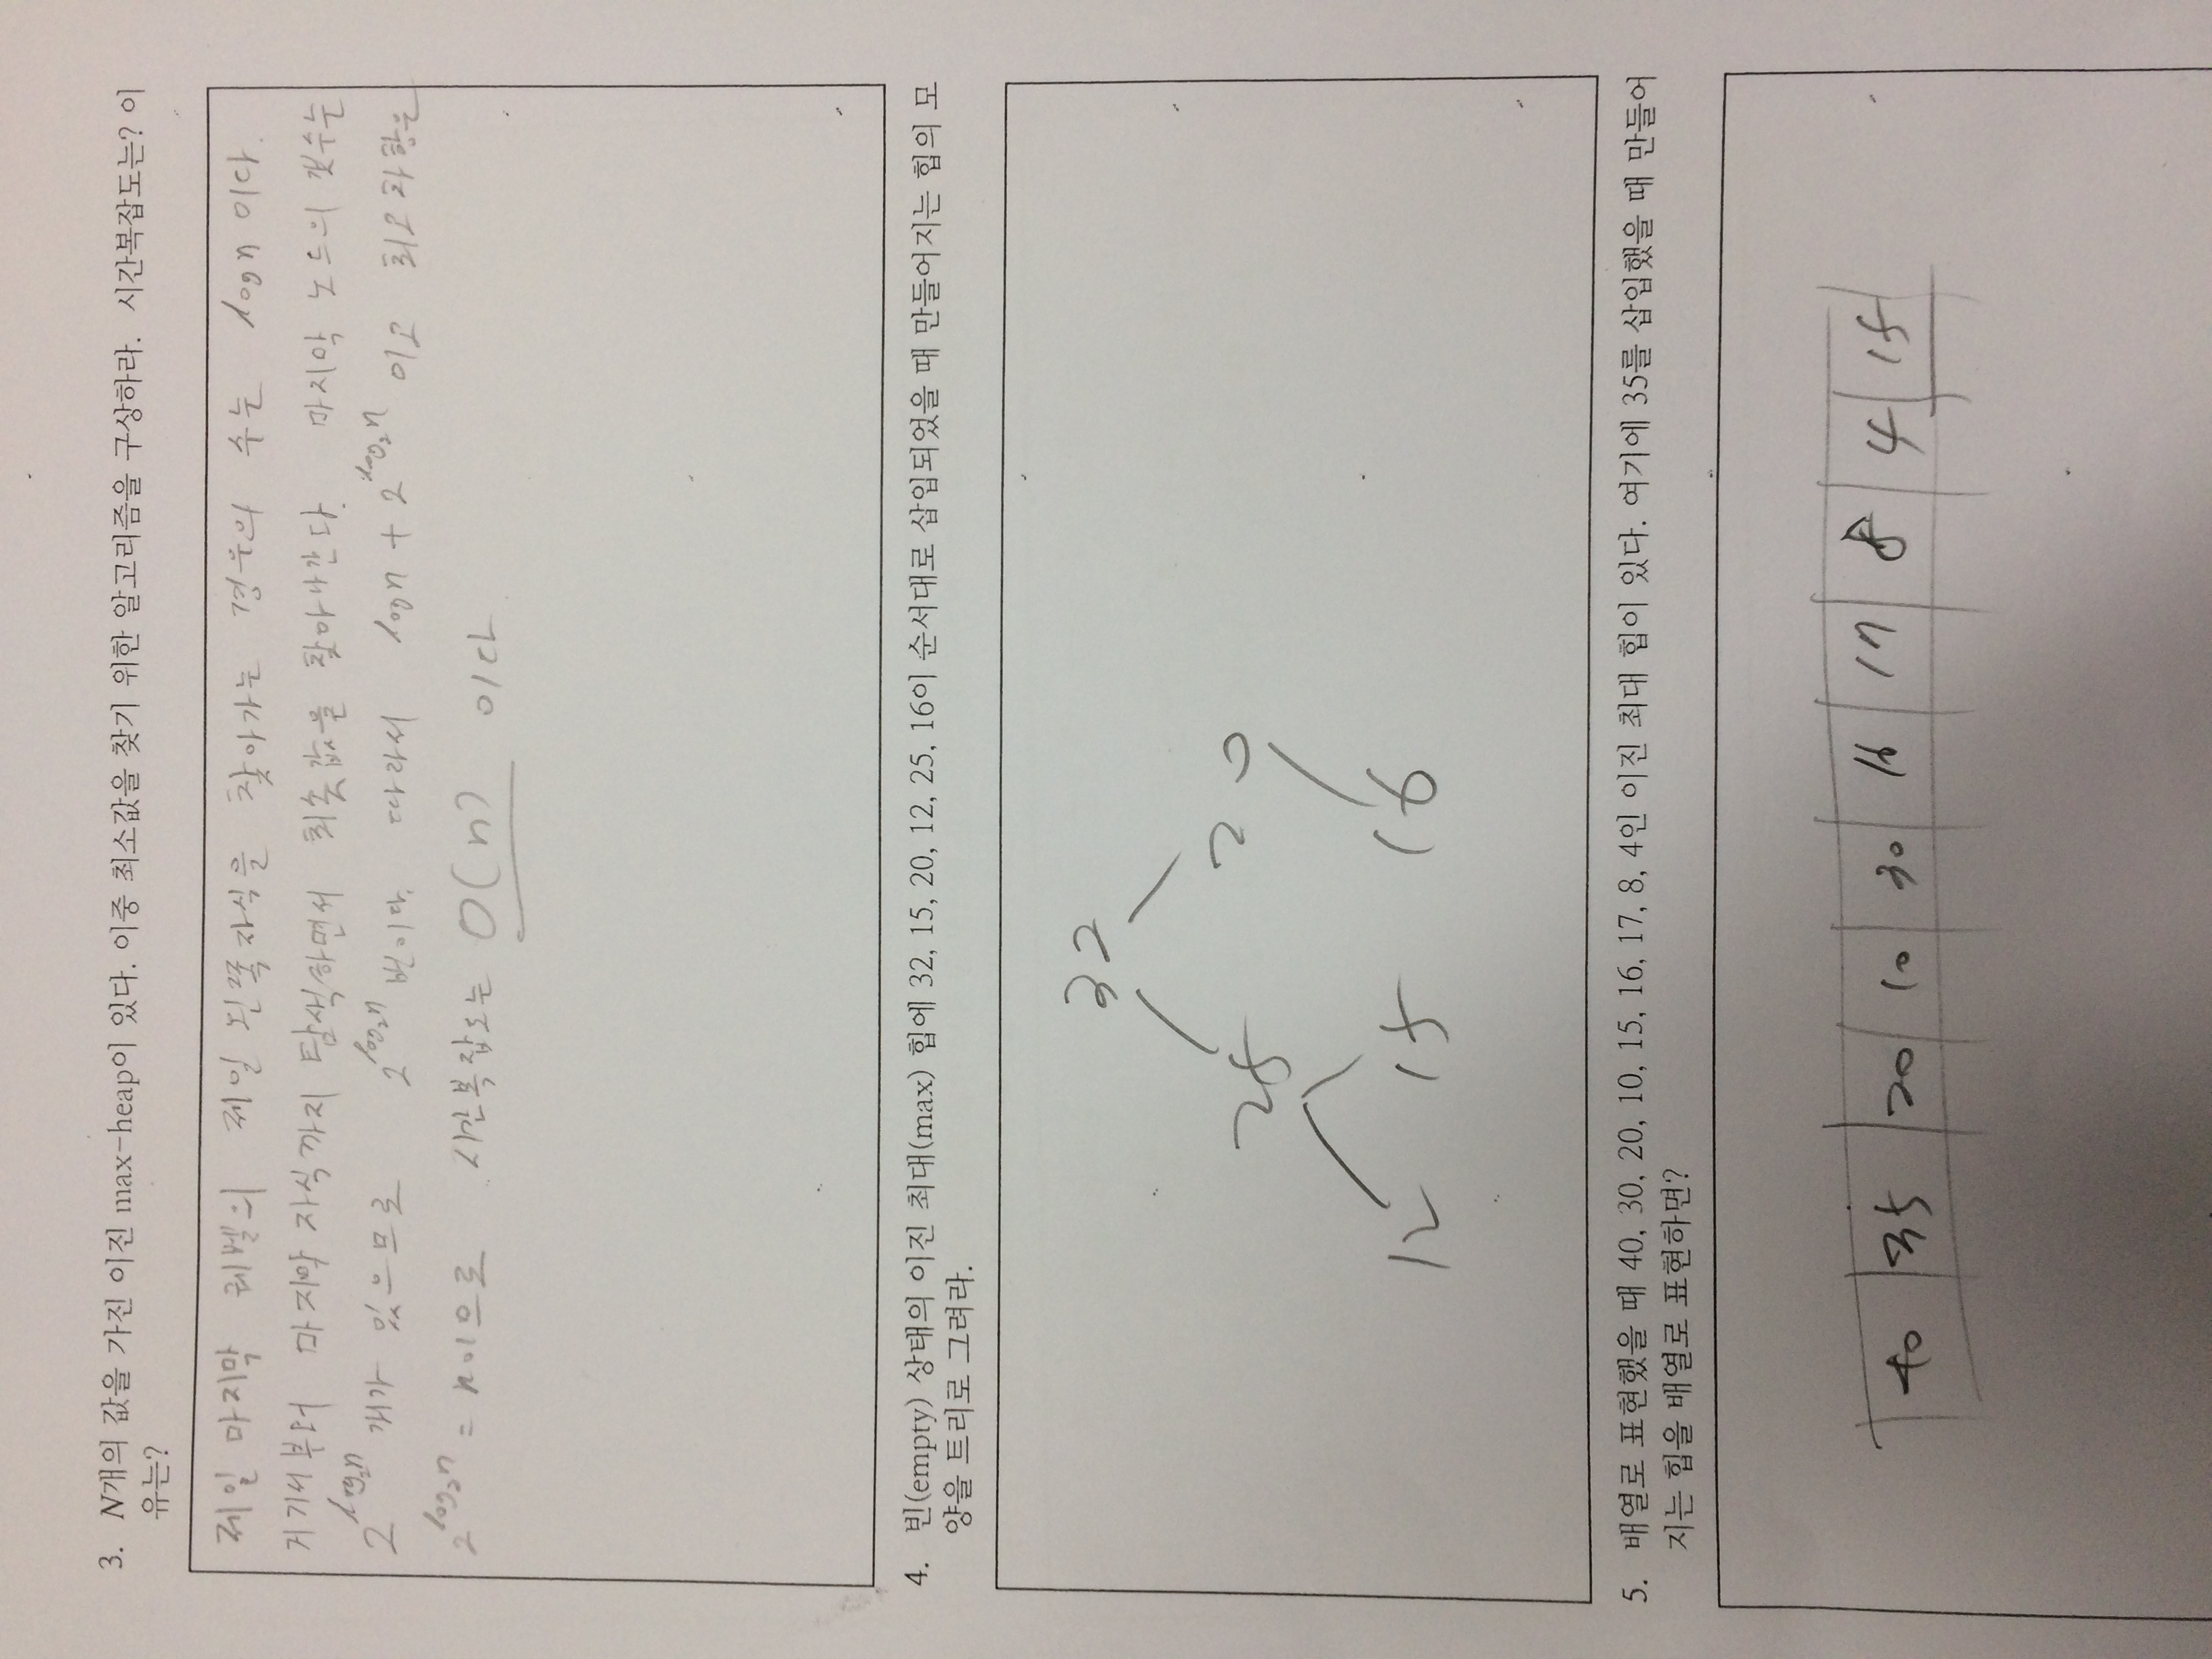 3. N개의 값을 가진 이진 max-heap이 있다. 이중 최소값을 찾기 위한 알고리즘을 구상하라. 시간복잡도는? 이
유는?
제일 마지막 레벨의 제일 왼쪽자식을 찾아가는 경우의 수는 log n 이다.
거기서부터 마지막 자식까지 탐색하면서 최솟값을 찾아나간다. 마지막 노드의 갯수는
2^log₂n 개가 있으므로 2^log₂n 번이다. 따라서 log n + 2^log₂n 이고 최고차항은
2^log₂n = n이므로 시간복잡도는 O(n) 이다
4. 빈(empty) 상태의 이진 최대(max) 힙에 32, 15, 20, 12, 25, 16이 순서대로 삽입되었을 때 만들어지는 힙의 모
양을 트리로 그려라.
32
25 20
12 15 16
5. 배열로 표현했을 때 40, 30, 20, 10, 15, 16, 17, 8, 4인 이진 최대 힙이 있다. 여기에 35를 삽입했을 때 만들어
지는 힙을 배열로 표현하면?
40 35 20 10 30 16 17 8 4 15